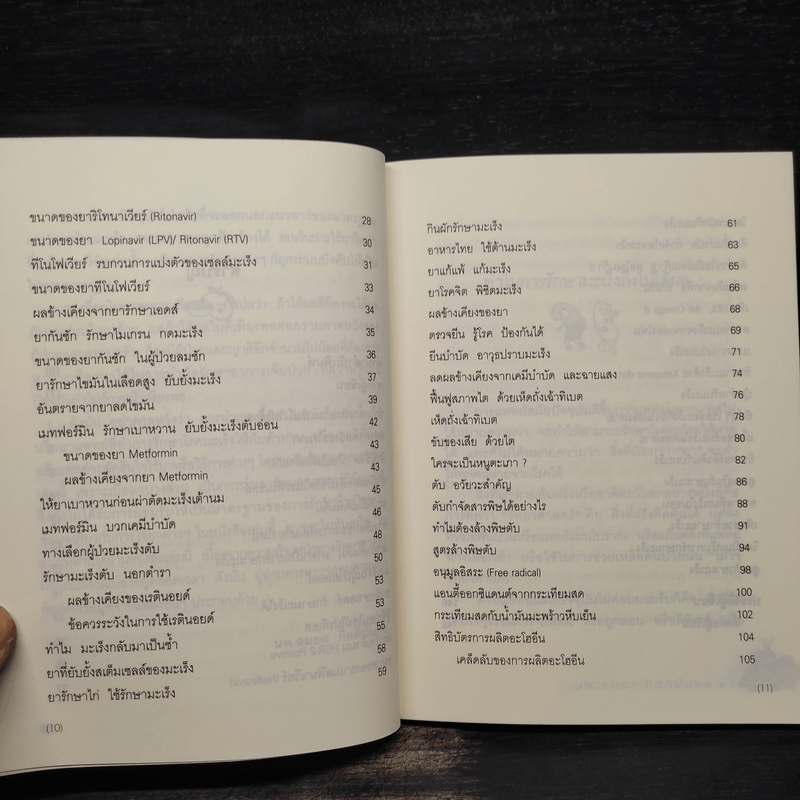 ขนาดของยาริโทนาเวียร์ (Ritonavir) 28
ขนาดของยา Lopinavir (LPV)/ Ritonavir (RTV) 30
ทีโนโฟเวียร์ รบกวนการแบ่งตัวของเซลล์มะเร็ง 31
ขนาดของยาทีโนโฟเวียร์ 33
ผลข้างเคียงจากยารักษาเอดส์ 34
ยากันชัก รักษาไมเกรน กดมะเร็ง 35
ขนาดของยากันชัก ในผู้ป่วยลมชัก 36
ยารักษาไขมันในเลือดสูง ยับยั้งมะเร็ง 37
อันตรายจากยาลดไขมัน 39
เมทฟอร์มิน รักษาเบาหวาน ยับยั้งมะเร็งตับอ่อน 42
ขนาดของยา Metformin 43
ผลข้างเคียงจากยา Metformin 43
ให้ยาเบาหวานก่อนผ่าตัดมะเร็งเต้านม 45
เมทฟอร์มิน บวกเคมีบำบัด 46
ทางเลือกผู้ป่วยมะเร็งตับ 48
รักษามะเร็งตับ นอกตำรา 50
ผลข้างเคียงของเรตินอยด์ 53
ข้อควรระวังในการใช้เรตินอยด์ 53
ทำไม มะเร็งกลับมาเป็นซ้ำ 55
ยาที่ยับยั้งสเต็มเซลล์ของมะเร็ง 58
ยารักษาไก่ ใช้รักษามะเร็ง 59
(10)
กินผักรักษามะเร็ง 61
อาหารไทย ใช้ต้านมะเร็ง 63
ยาแก้แพ้ แก้มะเร็ง 65
ยาโรคจิต พิชิตมะเร็ง 66
ผลข้างเคียงของยา 68
ตรวจยีน รู้โรค ป้องกันได้ 69
ยีนบำบัด อาวุธปราบมะเร็ง 71
ลดผลข้างเคียงจากเคมีบำบัด และฉายแสง 74
ฟื้นฟูสภาพไต ด้วยเห็ดถั่งเฉ้าทิเบต 76
เห็ดถั่งเฉ้าทิเบต 78
ขับของเสีย ด้วยไต 80
ใครจะเป็นหนูตะเภา ? 82
ตับ อวัยวะสำคัญ 86
ตับกำจัดสารพิษได้อย่างไร 88
ทำไมต้องล้างพิษตับ 91
สูตรล้างพิษตับ 94
อนุมูลอิสระ (Free radical) 98
แอนตี้ออกซิแดนต์จากกระเทียมสด 100
กระเทียมสดกับน้ำมันมะพร้าวหีบเย็น 102
สิทธิบัตรการผลิตอะโฮอีน 104
เคล็ดลับของการผลิตอะโฮอีน 105
(11)